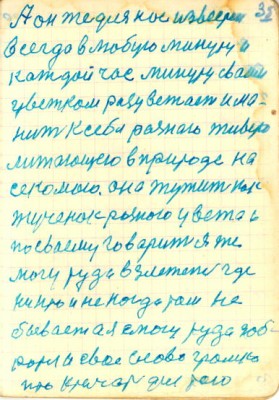 А он же для нас из веерия 32
всегда в любую минуту и
каждой час минуту своим
цветком разуветает и ма-
нит к себя разнаю живую
литающею в природе на
секомою. она жужит как
жученок-разного цвета и
посвоему говарит я же
могу туда взлететь где
никто и не когда там не
бывает а я смогу туда
и свое слово громко
про кричат для того